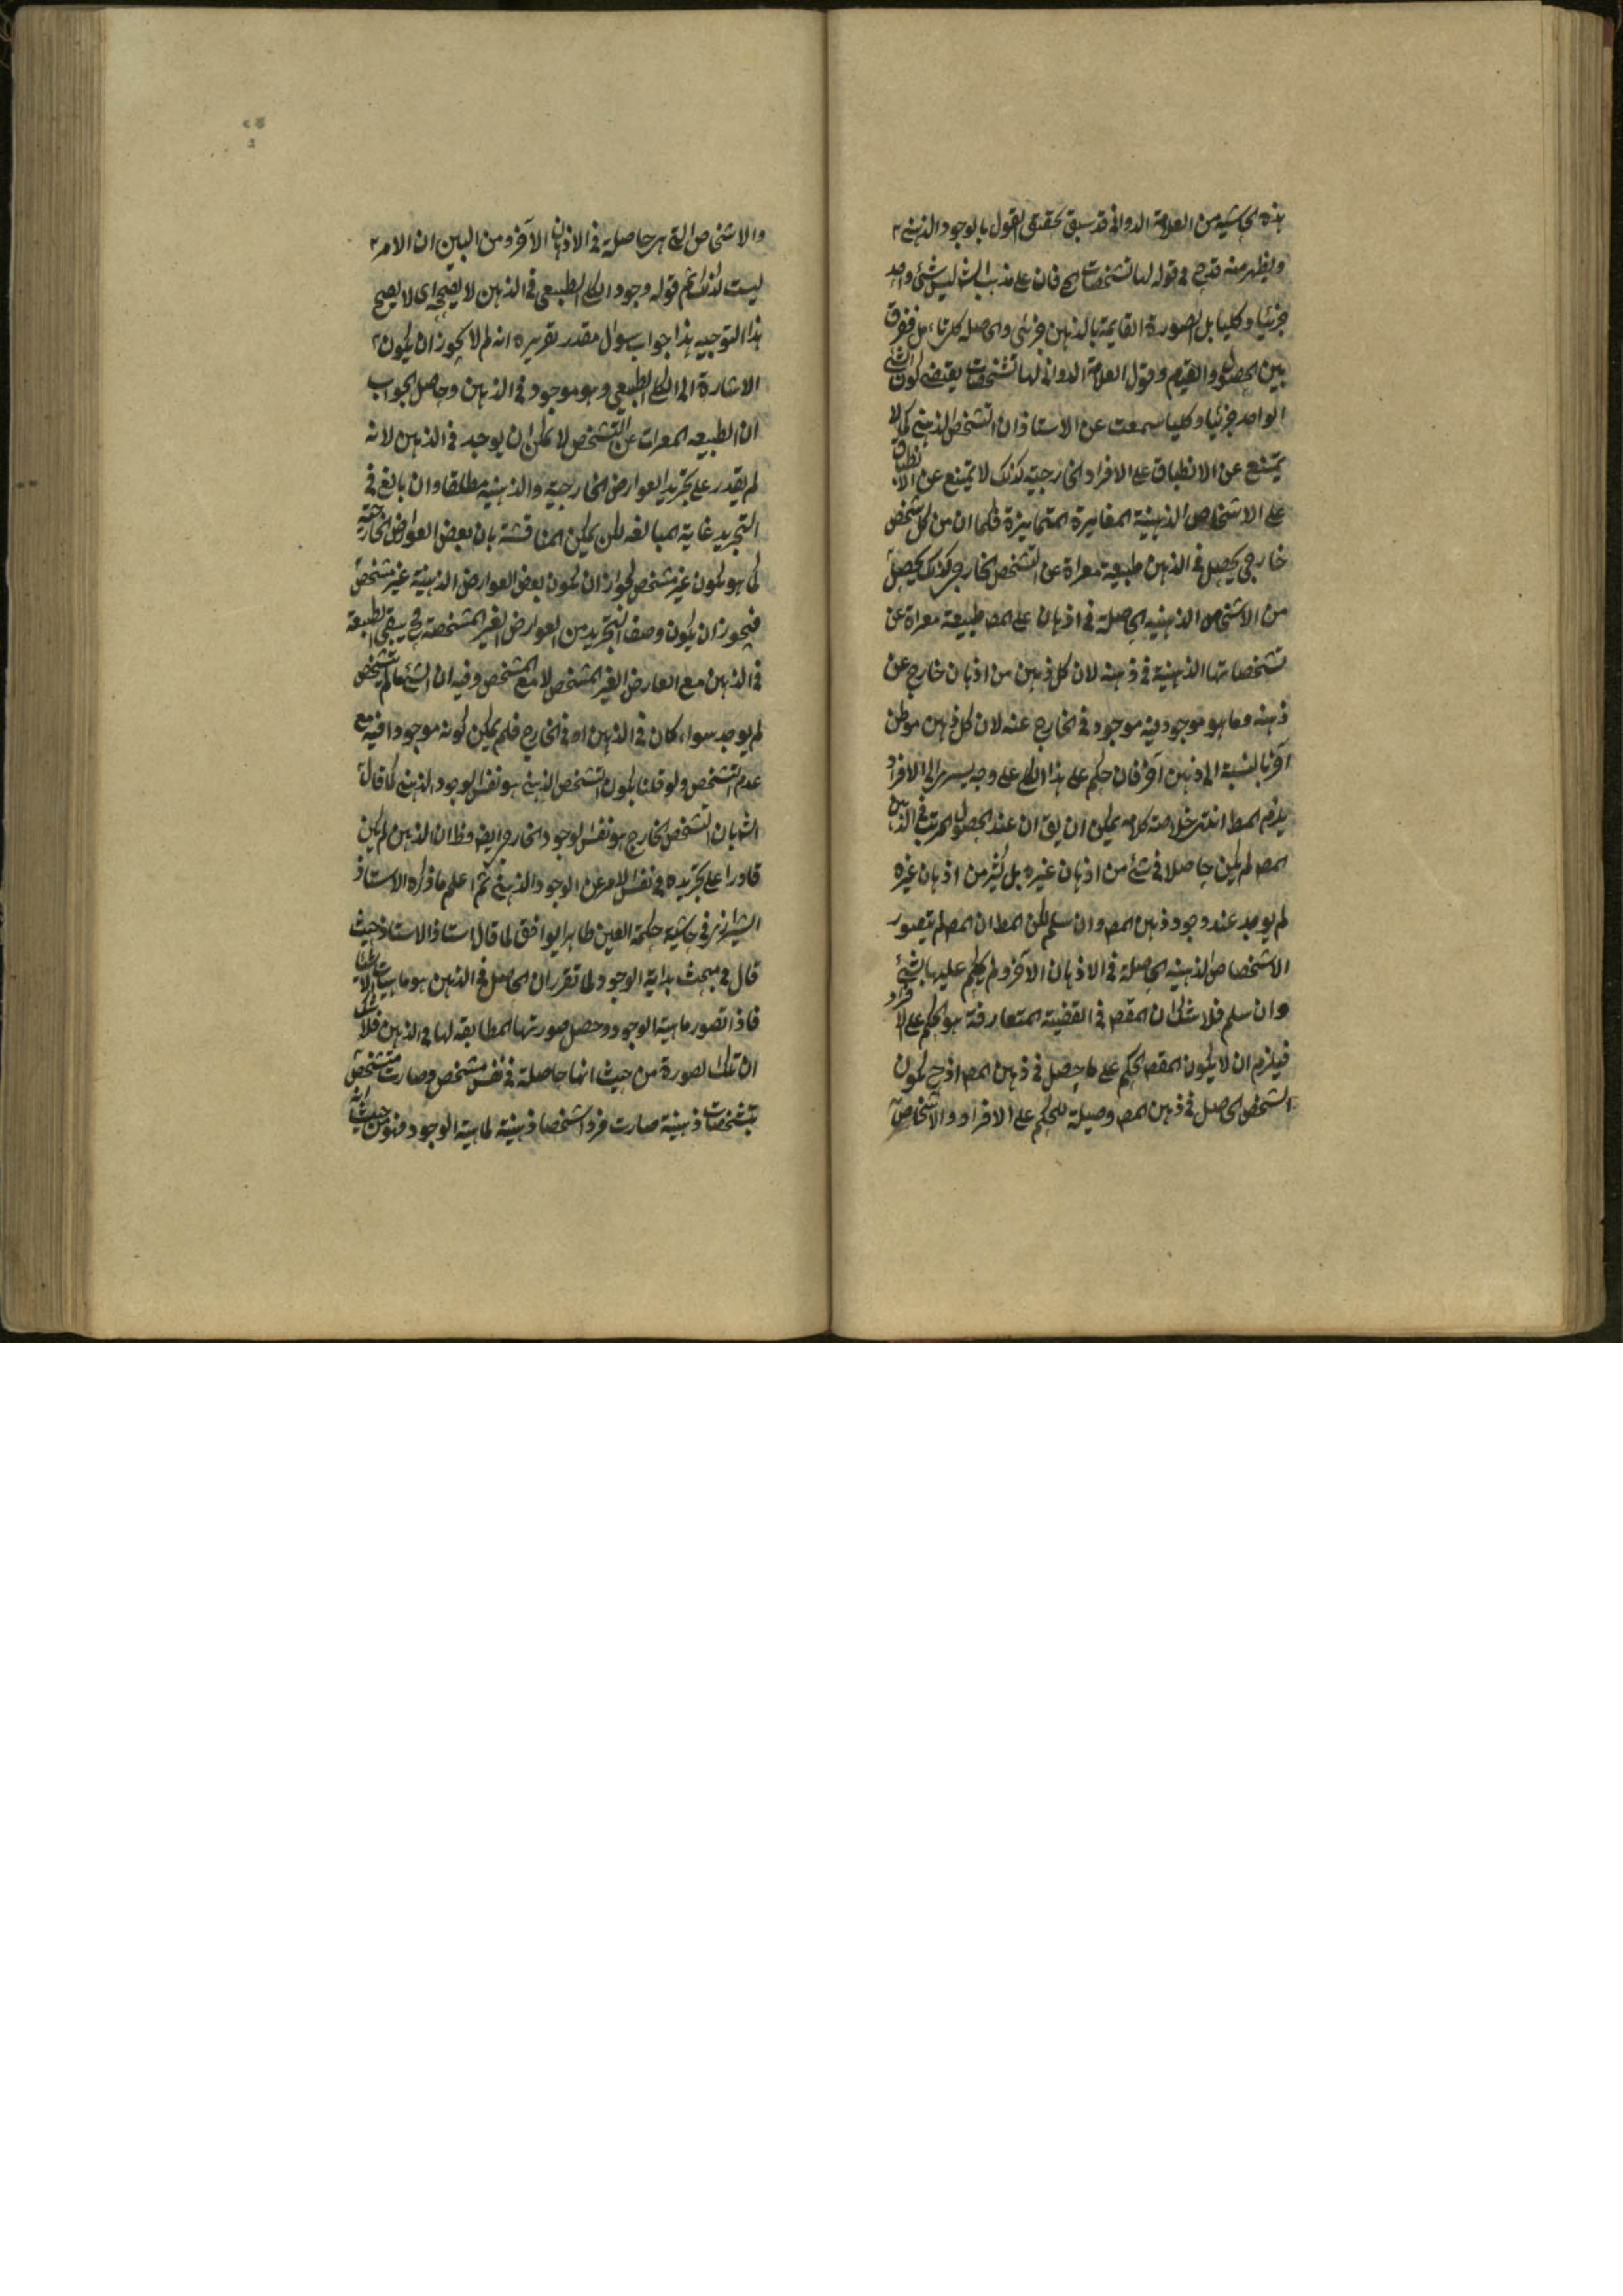 هذه الحاشية من العلامة الدواني قد سبق تحقيق القول بالوجود الذهني
ويظهر منه قدح في قوله لها تشخصات الخ فان على مذهب الش ليس شئ واحد
جزئيا وكليا بل الصورة القايمة بالذهن جزئي والحاصلة كلي تامل ففرق
بين الحصول والقيام وقول العلامة الدواني لها تشخصات يقتضي كون الشئ
الواحد جزئيا وكليا سمعت عن الاستاذ ان التشخص الذهني كما لا
يمتنع عن الانطباق على الافراد الخارجية كذلك لا يمتنع عن الانطباق
على الاشخاص الذهنية المغايرة المتمايزة فكما ان من كل شخص
خارجي يحصل في الذهن طبيعة معراة عن التشخص الخارجي كذلك يحصل
من الاشخاص الذهنية الحاصلة في اذهان على المص طبيعة معراة عن
تشخصاتها الذهنية في ذهنه لان كل ذهن من اذهان خارج عن
ذهنه وما هو موجود فيه موجود في الخارج عنه لان كل ذهن موطن
آخر بالنسبة الى ذهن آخر فان حكم على هذا الكلي على وجه يسري الى الافراد
يلزم المط انتهى خلاصة كلامه يمكن ان يق ان عند الحصول المرتب في الذهن
المص لم يكن حاصلا في شئ من اذهان غيره بل كثير من اذهان غيره
لم يوجد عند وجود ذهن المص وان سلم لكن المط ان المص لم يتصور
الاشخاص الذهنية الحاصلة في الاذهان الآخر ولم يحكم عليها بشئ
وان سلم فلا شك ان المقص في القضية المتعارفة هو الحكم على الافراد
فيلزم ان لا يكون المقص الحكم على ما حصل في ذهن المص اذ ح يكون
الشخص الحاصل في ذهن المص وصيلة للحكم على الافراد والاشخاص
والاشخاص التي هي حاصلة في الاذهان الآخر ومن البين ان الامر
ليست كذلك ثم قوله وجود الكلي الطبيعي في الذهن لا يصححه اي لا يصح
هذا التوجيه هذا جواب سوال مقدر تقريره انه لم لا يجوز ان يكون
الاشارة الى الكلي الطبيعي وهو موجود في الذهن وحاصل الجواب
ان الطبيعه المعرات عن التشخص لا يمكن ان يوجد في الذهن لانه
لم يقدر على تجريد العوارض الخارجية والذهنية مطلقا وان بالغ في
التجريد غاية المبالغه لكن يمكن المناقشة بان بعض العوارض الخارجية
كما هو يكون غير مشخص لجواز ان يكون بعض العوارض الذهنية غير مشخص
فيجوز ان يكون وصف التجريد من العوارض الغير المشخصة ح يبقى الطبيعة
في الذهن مع العارض الغير المشخص لا مع المشخص وفيه ان الشئ ما لم يتشخص
لم يوجد سواء كان في الذهن او في الخارج فلم يمكن كونه موجودا فيه مع
عدم التشخص ولو قلنا بكون التشخص الذهني هو نفس الوجود الذهني كما قال
الش بان التشخص الخارجي هو نفس الوجود الخارجي ايض وظ ان الذهن لم يكن
قادرا على تجريده في نفس الامر عن الوجود الذهني ثم اعلم ما ذكره الاستاذ
الشيرازي في حاشية حكمة العين ظاهرا يوافق لما قال استاذ الاستاذ حيث
قال في مبحث بداية الوجود لما تقرر ان الحاصل في الذهن هو ماهيات الاشياء
فاذا تصور ماهية الوجود وحصل صورتها المطابقة لها في الذهن فلا شك
ان تلك الصورة من حيث انها حاصلة في نفس مشخص وصارت متشخص
بتشخصات ذهنية صارت فردا شخصا ذهنية لماهية الوجود فهو من حيث انه